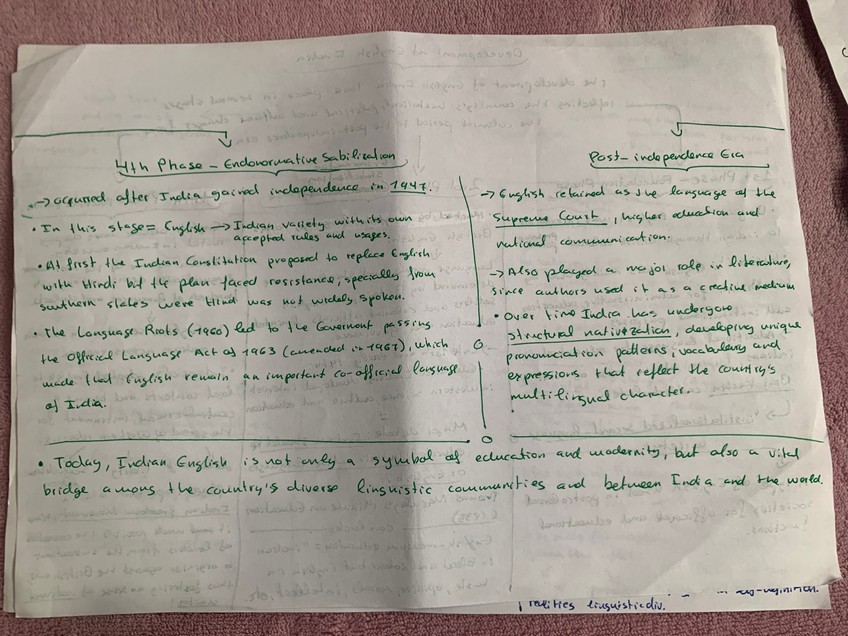 4th Phase - Endonormative Sabilization
→ ocurred after India gained independence in 1947.
• In this stage = English → Indian variety with its own
accepted rules and usages.
• At first the Indian Constitution proposed to replace English
with Hindi but the plan faced resistance, specially from
southern states were Hindi was not widely spoken.
• The Language Riots (1960) led to the Goverment passing
the Official Language Act of 1963 (amended in 1967), which
made that English remain an important co-official language
of India.
Post-independence Era
→ English retained as the language of the
Supreme Court, higher education and
national communication.
→ Also played a major role in literature,
since authors used it as a creative medium
• Over time India has undergone
structural nativization, developing unique
pronunciation patterns, vocabulary and
expressions that reflect the country's
multilingual character.
• Today, Indian English is not only a symbol of education and modernity, but also a vital
bridge among the country's diverse linguistic communities and between India and the world.
realities linguistic div.